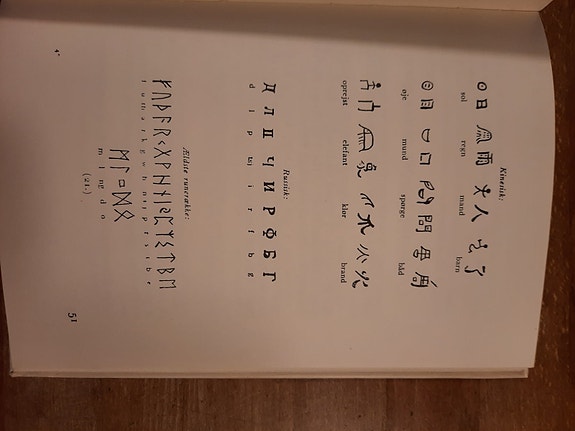 Kinesisk:
日 雨 人
sol regn mand barn
口 問
øje mund spørge båd
火
oprejst elefant klør brand
Russisk:
Д Л П Ч И Р Ф Б Г
d l p tsj i r f b g
Ældste runerække:
ᚠ ᚢ ᚦ ᚨ ᚱ ᚲ ᚷ ᚹ ᚺ ᚾ ᛁ ᛏ ᛒ ᛖ
f u th a r k g w h n i s t b e
ᛗ ᛚ ᛜ ᛞ ᛟ
m l ng d o
(24.)
4*
51